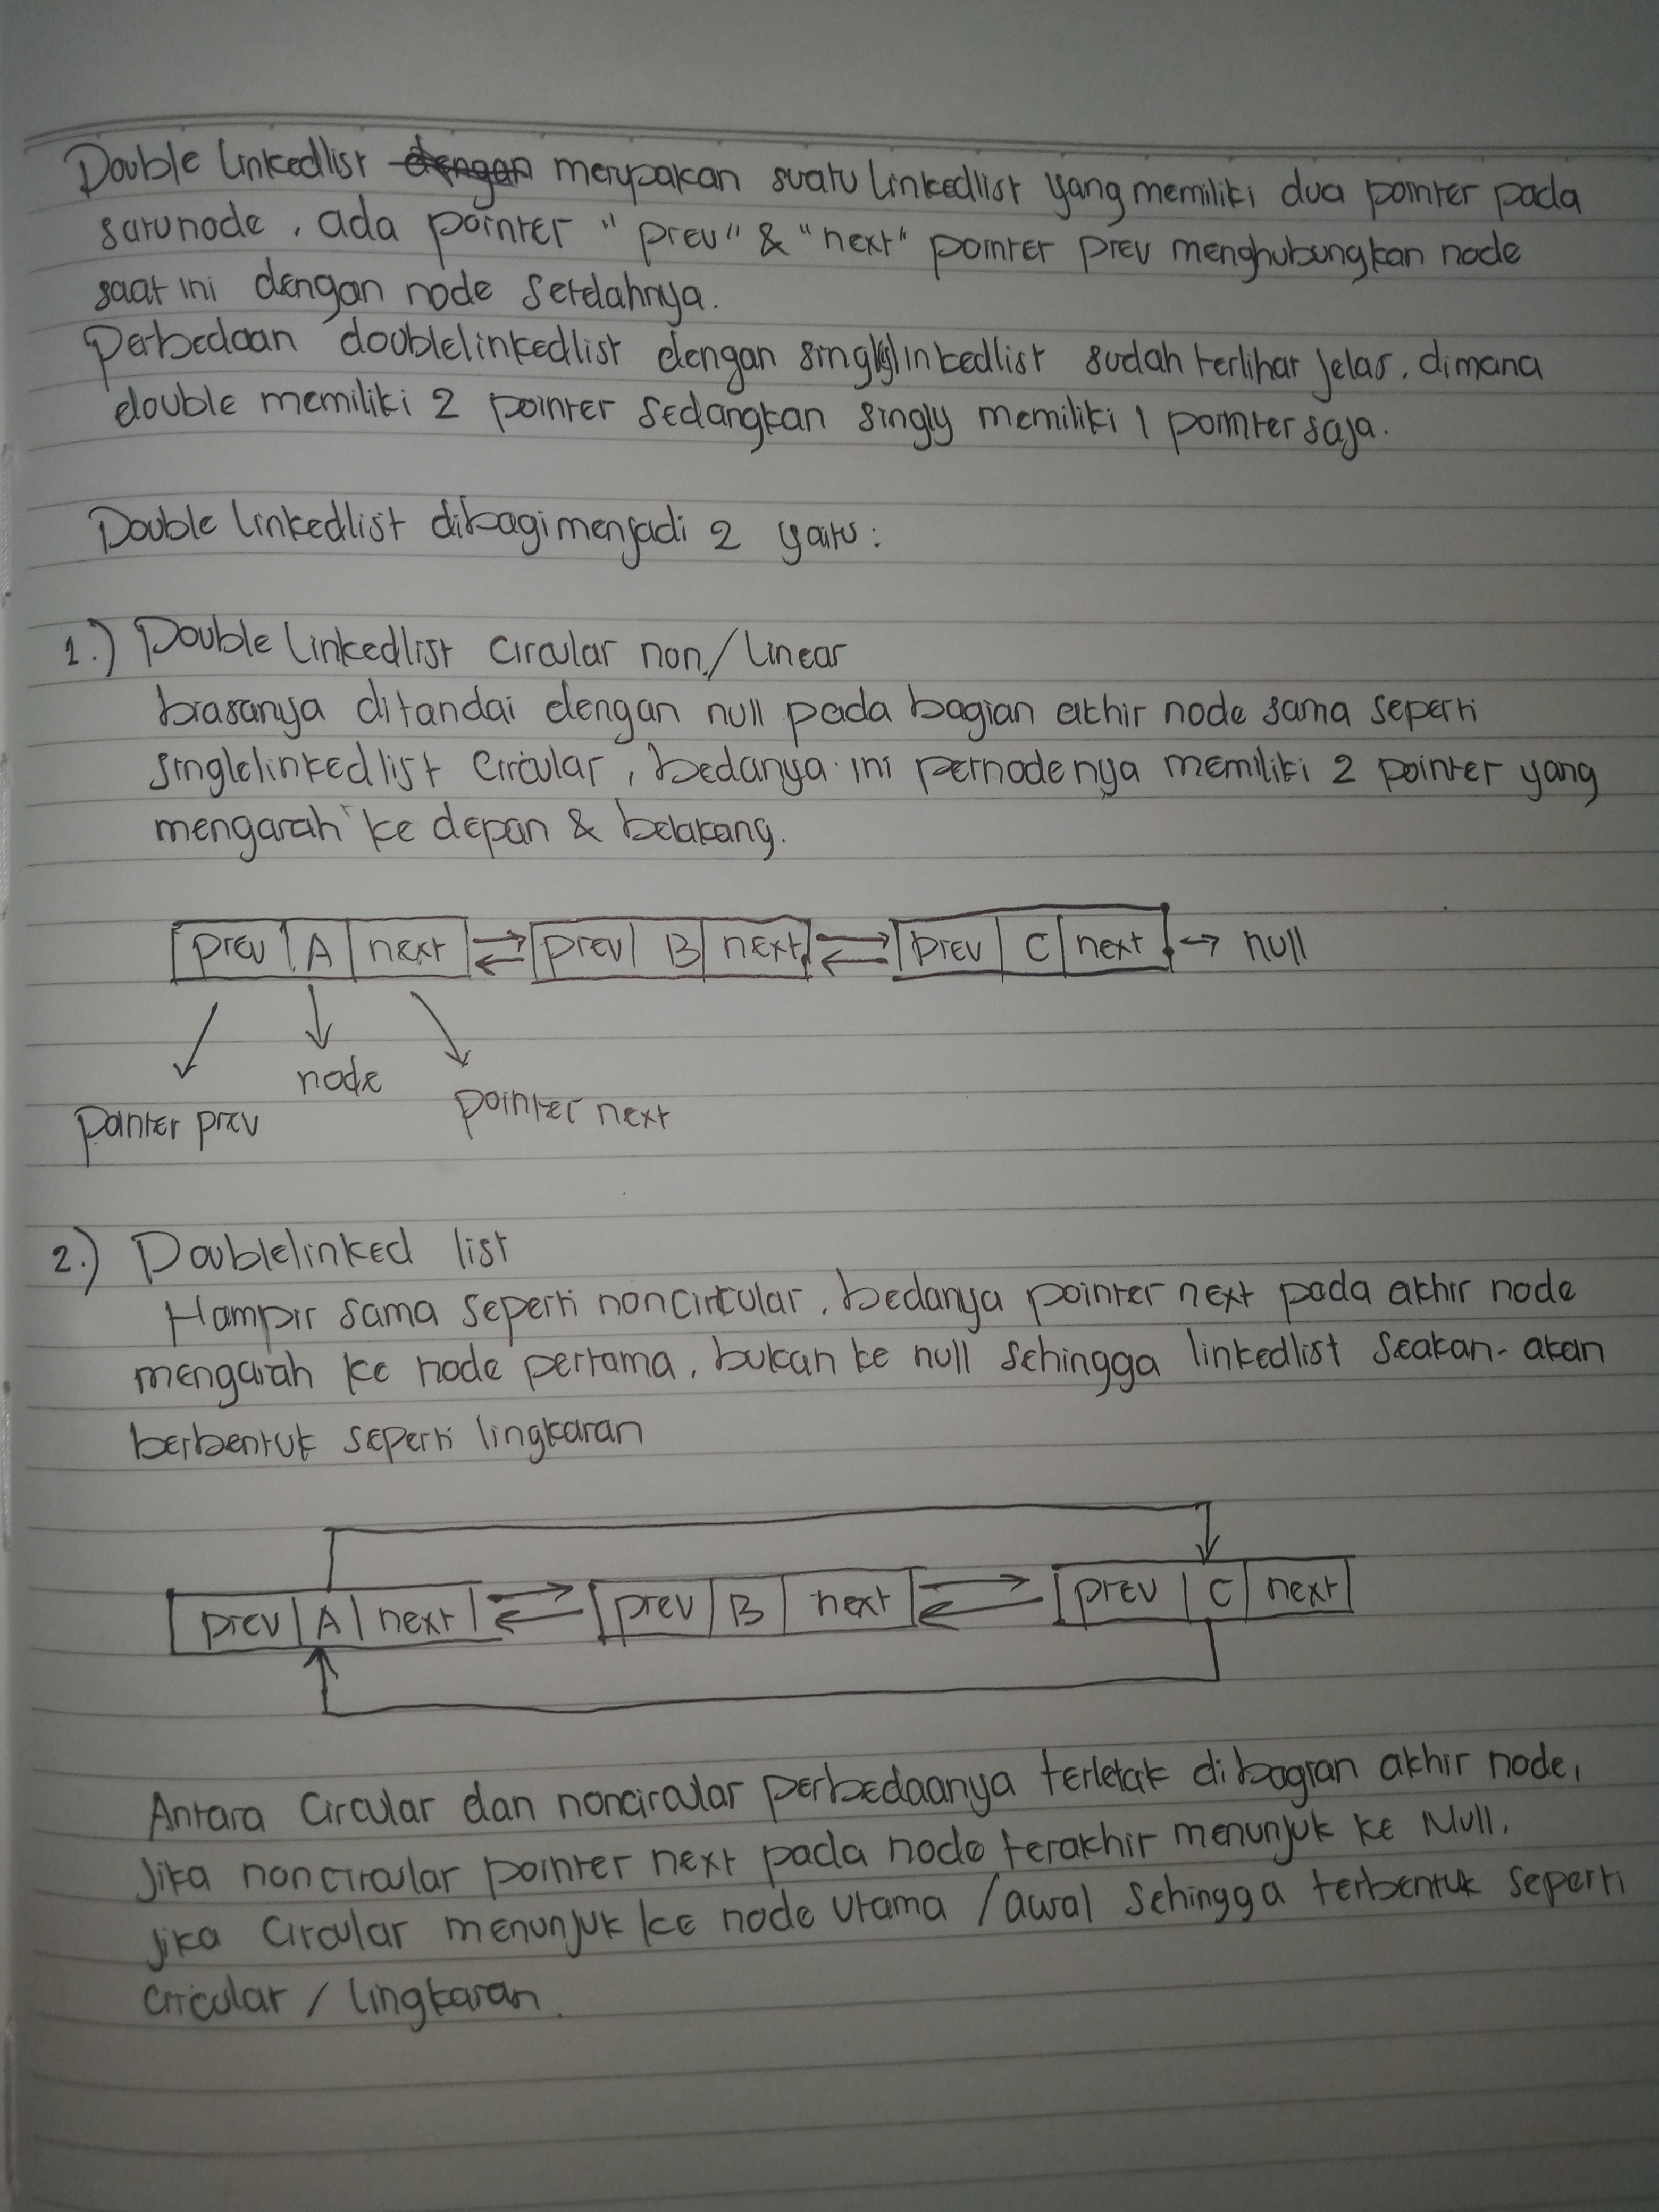 Double linkedlist dengan merupakan suatu linkedlist yang memiliki dua pointer pada
satu node, ada pointer "prev" & "next" pointer prev menghubungkan node
saat ini dengan node setelahnya.
Perbedaan doublelinkedlist dengan singlylinkedlist sudah terlihat jelas, dimana
double memiliki 2 pointer sedangkan singly memiliki 1 pointer saja.
Double linkedlist dibagi menjadi 2 yaitu:
1.) Double linkedlist circular non/linear
biasanya ditandai dengan null pada bagian akhir node sama seperti
singlelinkedlist circular, bedanya ini pernodenya memiliki 2 pointer yang
mengarah ke depan & belakang.
prev A next prev B next prev C next → null
node
pointer prev pointer next
2.) Doublelinked list
Hampir sama seperti noncircular, bedanya pointer next pada akhir node
mengarah ke node pertama, bukan ke null sehingga linkedlist seakan-akan
berbentuk seperti lingkaran
prev A next prev B next prev C next
Antara Circular dan noncircular perbedaanya terletak dibagian akhir node,
Jika noncircular pointer next pada node terakhir menunjuk ke Null,
Jika Circular menunjuk ke node utama / awal sehingga terbentuk seperti
circular / lingkaran.